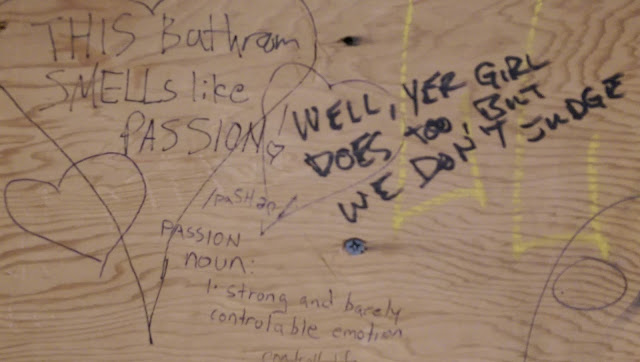 THIS Bathroom
SMELLS like
PASSION!
WELL, YER GIRL
DOES TOO, BUT
WE DON'T JUDGE
/paSHən/
PASSION
noun:
1. strong and barely
controlable emotion